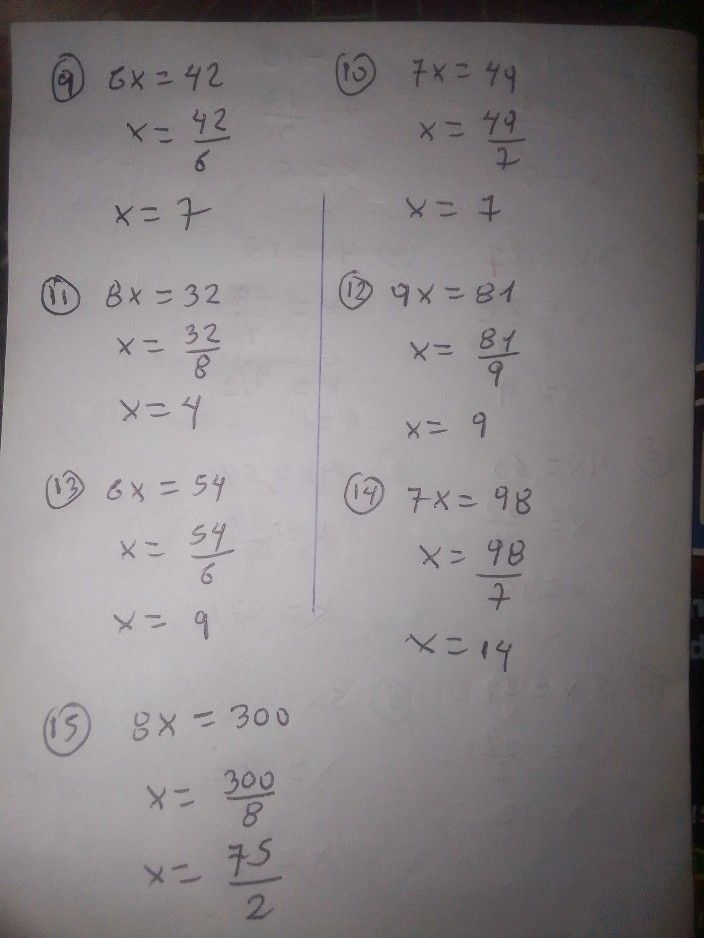 ⑨ 6x = 42
x = 42/6
x = 7
⑩ 7x = 49
x = 49/7
x = 7
⑪ 8x = 32
x = 32/8
x = 4
⑫ 9x = 81
x = 81/9
x = 9
⑬ 6x = 54
x = 54/6
x = 9
⑭ 7x = 98
x = 98/7
x = 14
⑮ 8x = 300
x = 300/8
x = 75/2